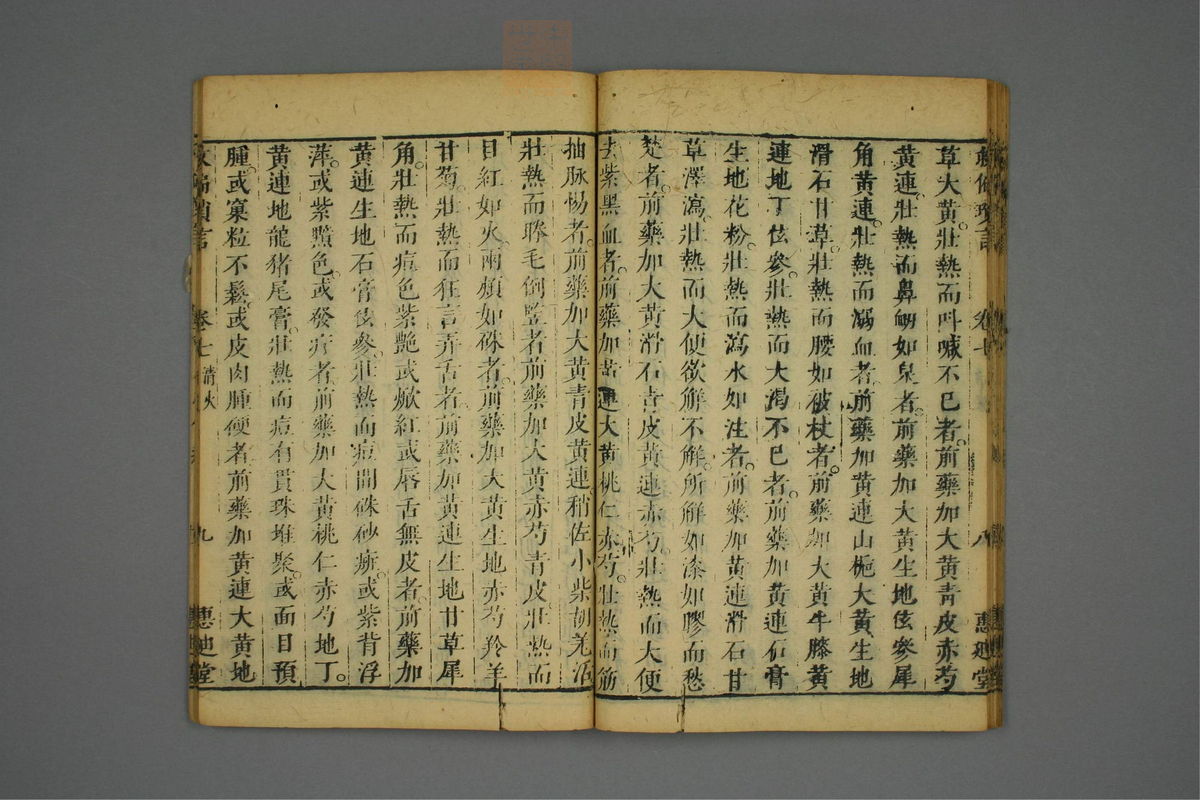 卷七 八 惠迪堂
草大黃壯熱而呌喊不已者前藥加大黃青皮赤芍
黃連壯熱而鼻衂如泉者前藥加大黃生地玄參犀
角黃連壯熱而溺血者前藥加黃連山梔大黃生地
滑石甘草壯熱而腰如被杖者前藥加大黃牛膝黃
連地丁玄參壯熱而大渴不已者前藥加黃連石膏
生地花粉壯熱而瀉水如注者前藥加黃連滑石甘
草澤瀉壯熱而大便欲解不解所解如漆如膠而愁
楚者前藥加大黃滑石青皮黃連赤芍壯熱而大便
去紫黑血者前藥加黃連大黃桃仁赤芍壯熱而筋
抽脉惕者前藥加大黃青皮黃連稍佐小柴胡羌活
壯熱而毛倒豎者前藥加大黃赤芍青皮壯熱而
目紅如火兩頰如硃者前藥加大黃生地赤芍羚羊
甘菊壯熱而狂言弄舌者前藥加黃連生地甘草犀
角壯熱而痘色紫艷或焮紅或唇舌無皮者前藥加
黃連生地石膏玄參壯熱而痘間硃砂㾦或紫背浮
萍或紫黶色或發疔者前藥加大黃桃仁赤芍地丁
黃連地龍猪尾膏壯熱而痘有貫珠堆聚或面目預
腫或窠粒不鬆或皮肉腫硬者前藥加黃連大黃地
卷七 清火 九 惠迪堂